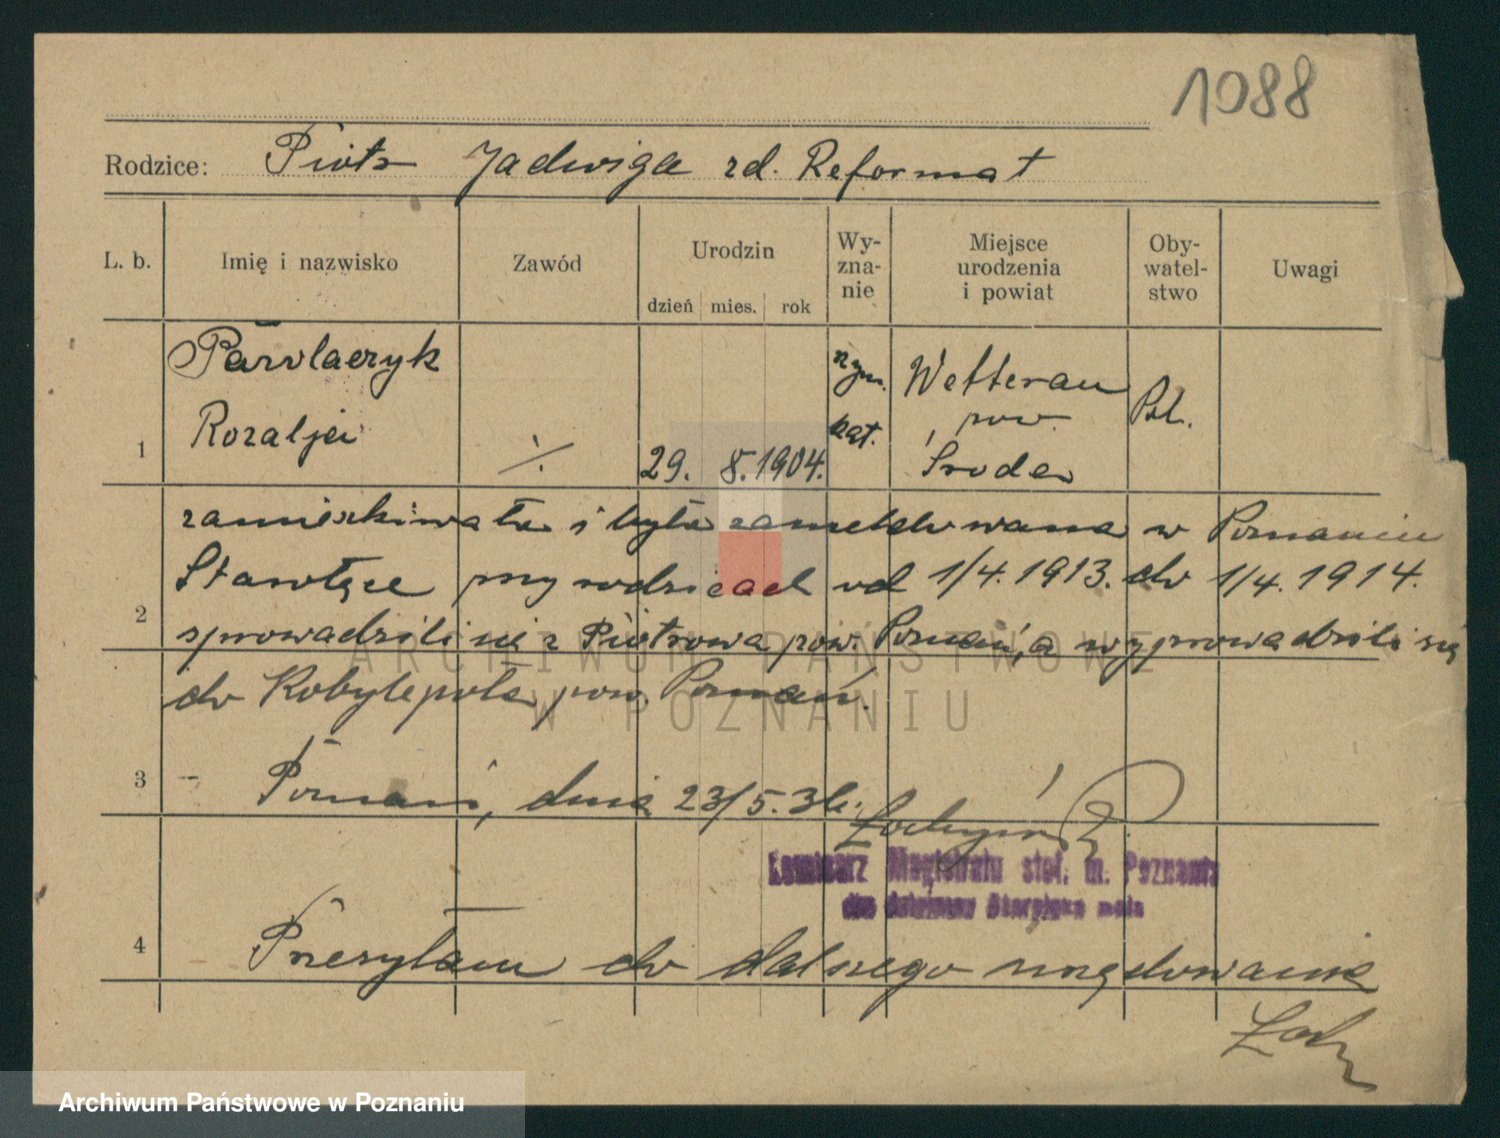 1088
Rodzice: Piotr Jadwiga zd. Reformat
L. b. Imię i nazwisko Zawód Urodzin dzień mies. rok Wy-zna-nie Miejsce urodzenia i powiat Oby-watel-stwo Uwagi
1 Pawlaczyk Rozalja ·/. 29. 8. 1904. rzym. kat. Wetterau pow. Środa Pol.
zamieszkiwała i była zameldowana w Poznaniu
Starołęce przy rodzicach od 1/4. 1913. do 1/4. 1914.
2
sprowadzili się z Piotrowa pow. Poznań, a wyprowadzili się
do Kobylepola pow. Poznań.
3 Poznań, dnia 23/5.
Komisarz Magistratu stoł. m. Poznania
4 Przesyłam do dalszego urzędowania
ARCHIWUM PAŃSTWOWE
W POZNANIU
Archiwum Państwowe w Poznaniu